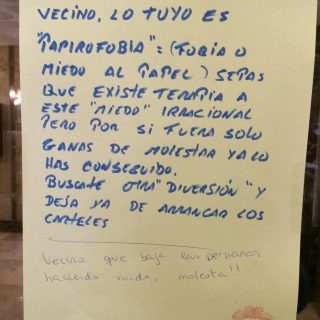 VECINO, LO TUYO ES
"PAPIROFOBIA" = (FOBIA O
MIEDO AL PAPEL) SEPAS
QUE EXISTE TERAPIA A
ESTE "MIEDO" IRRACIONAL
PERO POR SI FUERA SOLO
GANAS DE MOLESTAR YA LO
HAS CONSEGUIDO.
BUSCATE OTRA "DIVERSIÓN" Y
DEJA YA DE ARRANCAR LOS
CARTELES
Vecino que baja las persianas
haciendo ruido, molesta!!